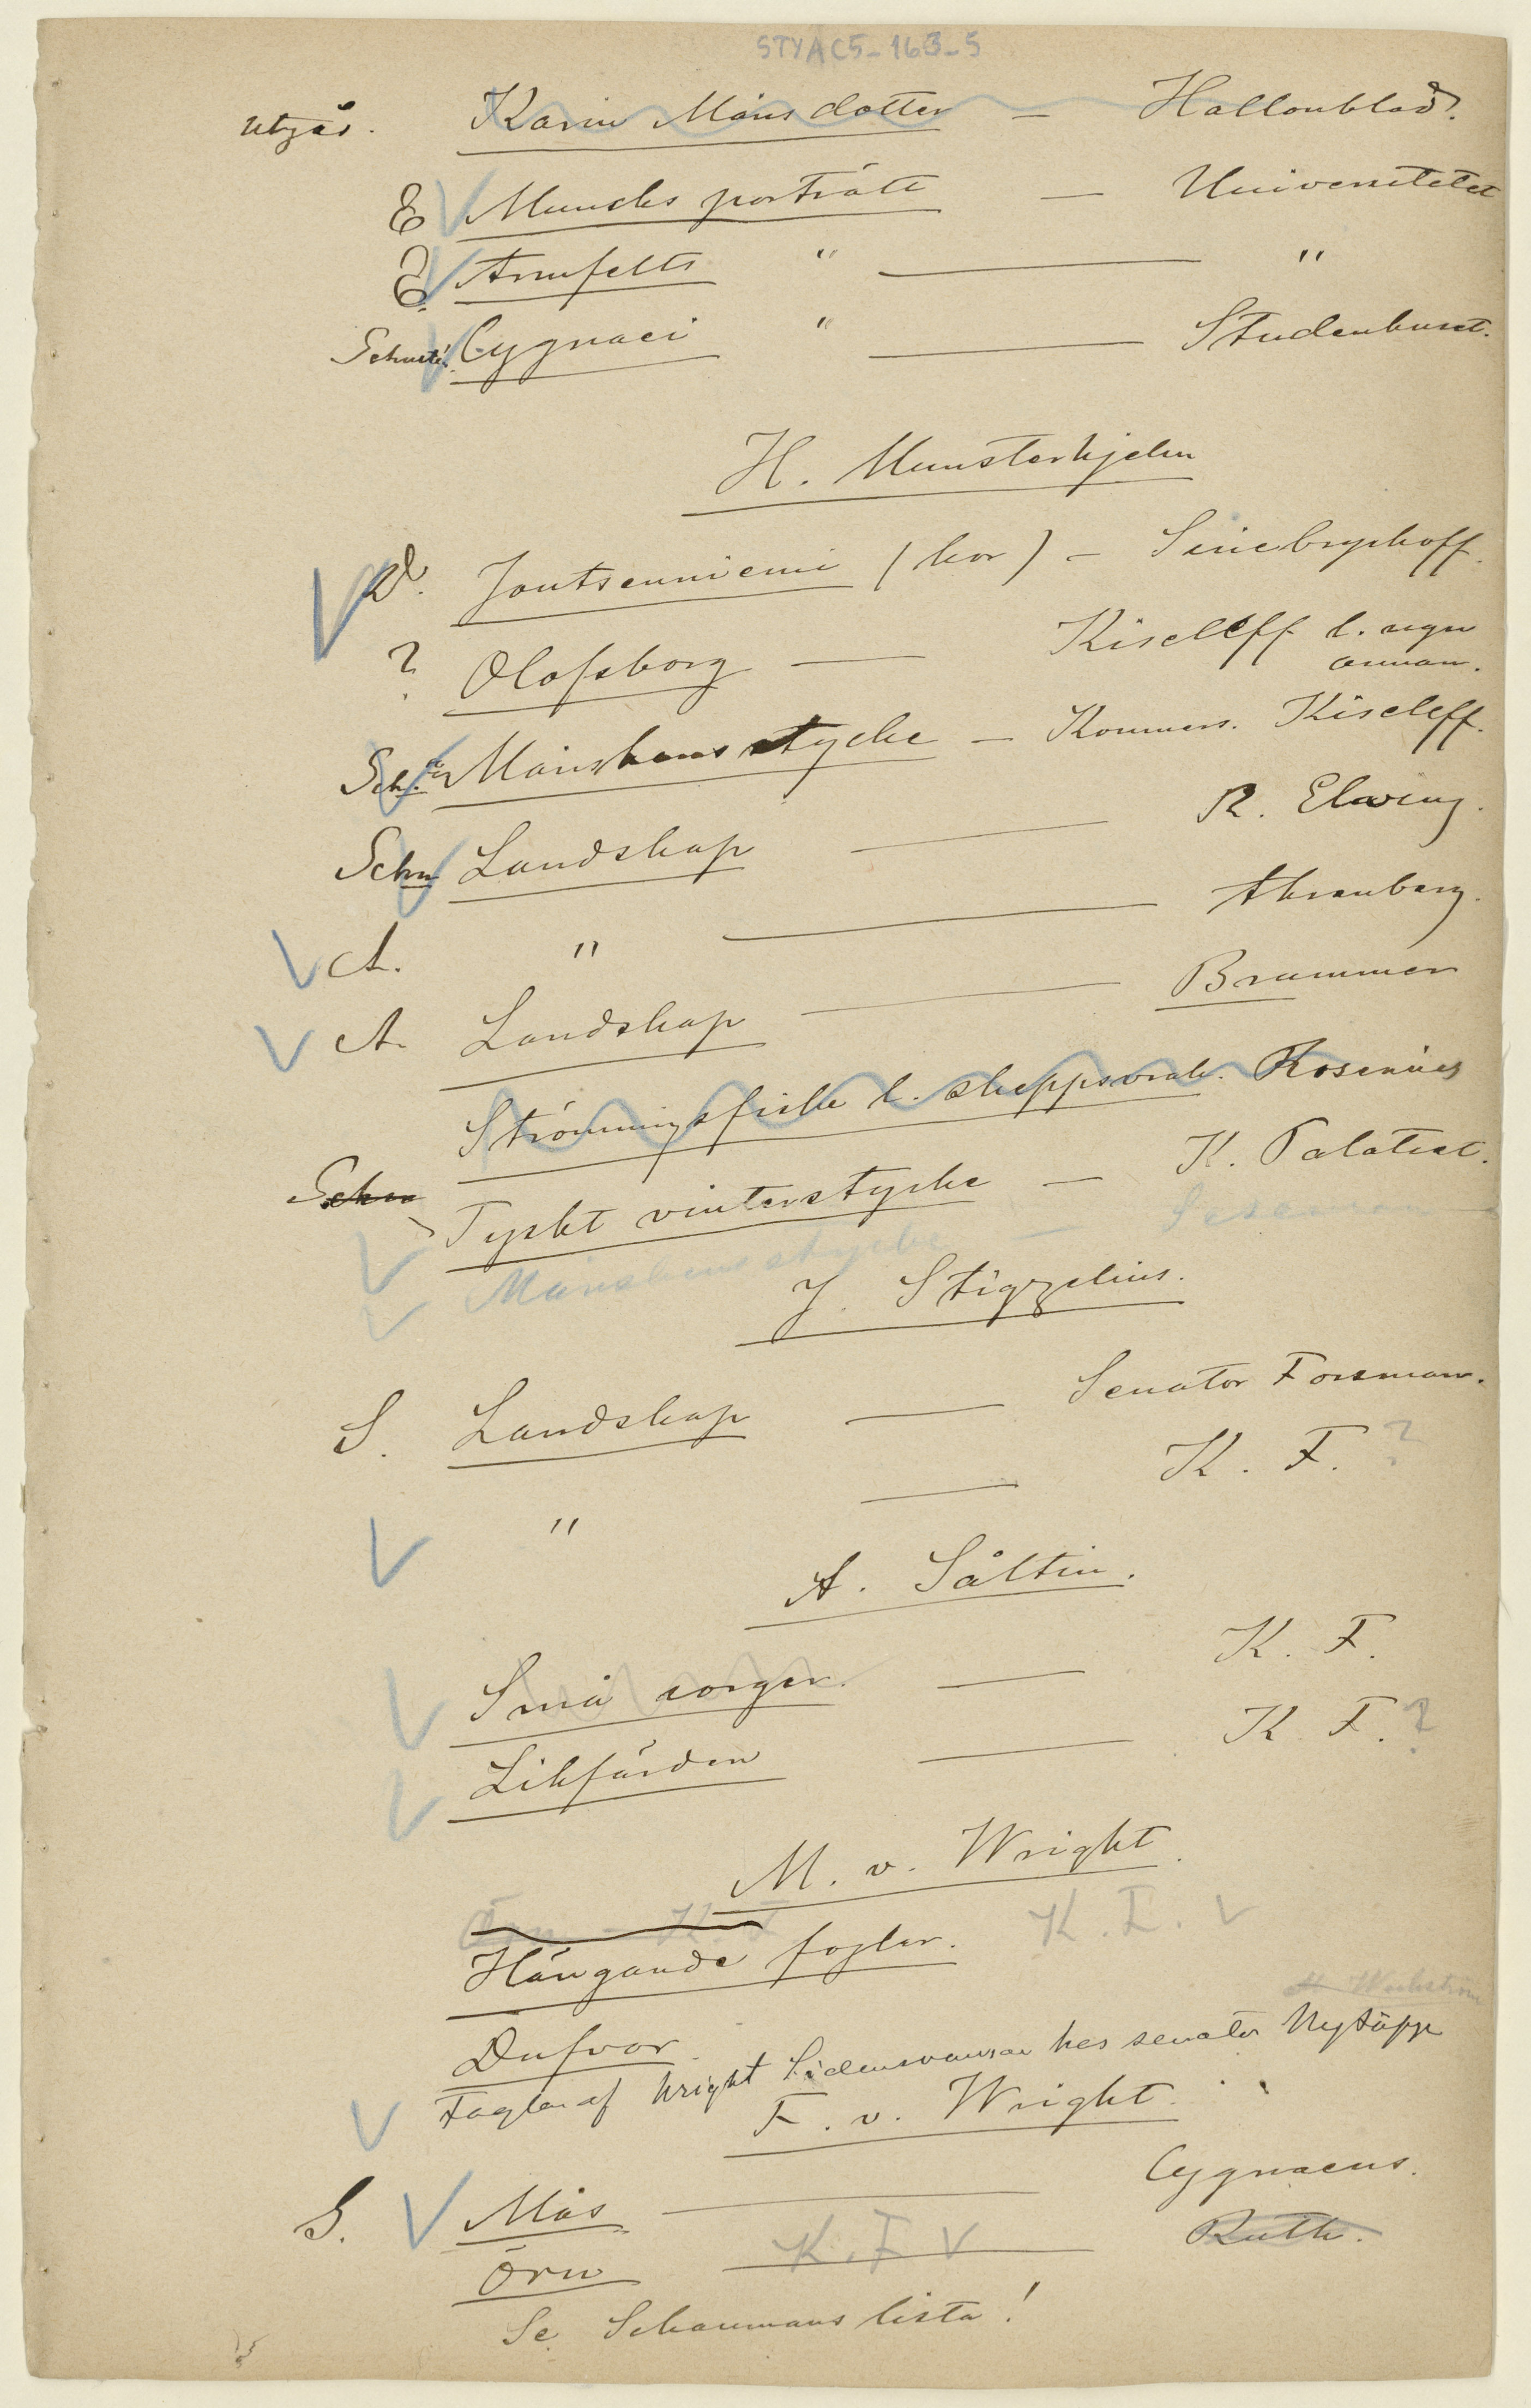 STYAC5-163-5
utgår. Karin Månsdotter — Hallonblad.
E Muncks porträtt — Universitetet
E. Armfelts " — "
Schultén. Cygnaei " — Studenhuset.
H. Munsterhjelm
Joutsenniemi (kor) — Sinebrychoff.
? Olofsborg — Kiseleff l. ngn
annan.
Sch. Månskensstycke — Kommers. Kiseleff.
Schn Landskap — R. Elwing.
A. " — Ahrenberg.
A. Landskap — Brummer
Strömmingsfiske l. skeppsvrak. Rosenius
Schn Tyskt vinterstycke — K. Palatset.
Månskensstycke —
J. Stigzelius.
S. Landskap — Senator Forsman.
" — K. F. ?
A. Såltin.
Små sorger. — K. F.
Likfärden — K. F. ?
M. v. Wright.
Örn — K. F
Hängande foglar. K. F. V
Dufvor
Foglar af Wright Sidensvansar hos senator Nytäpp
F. v. Wright.
S. Mås — Cygnaeus.
Örn — K. F V Ruth.
Se Schaumans lista!